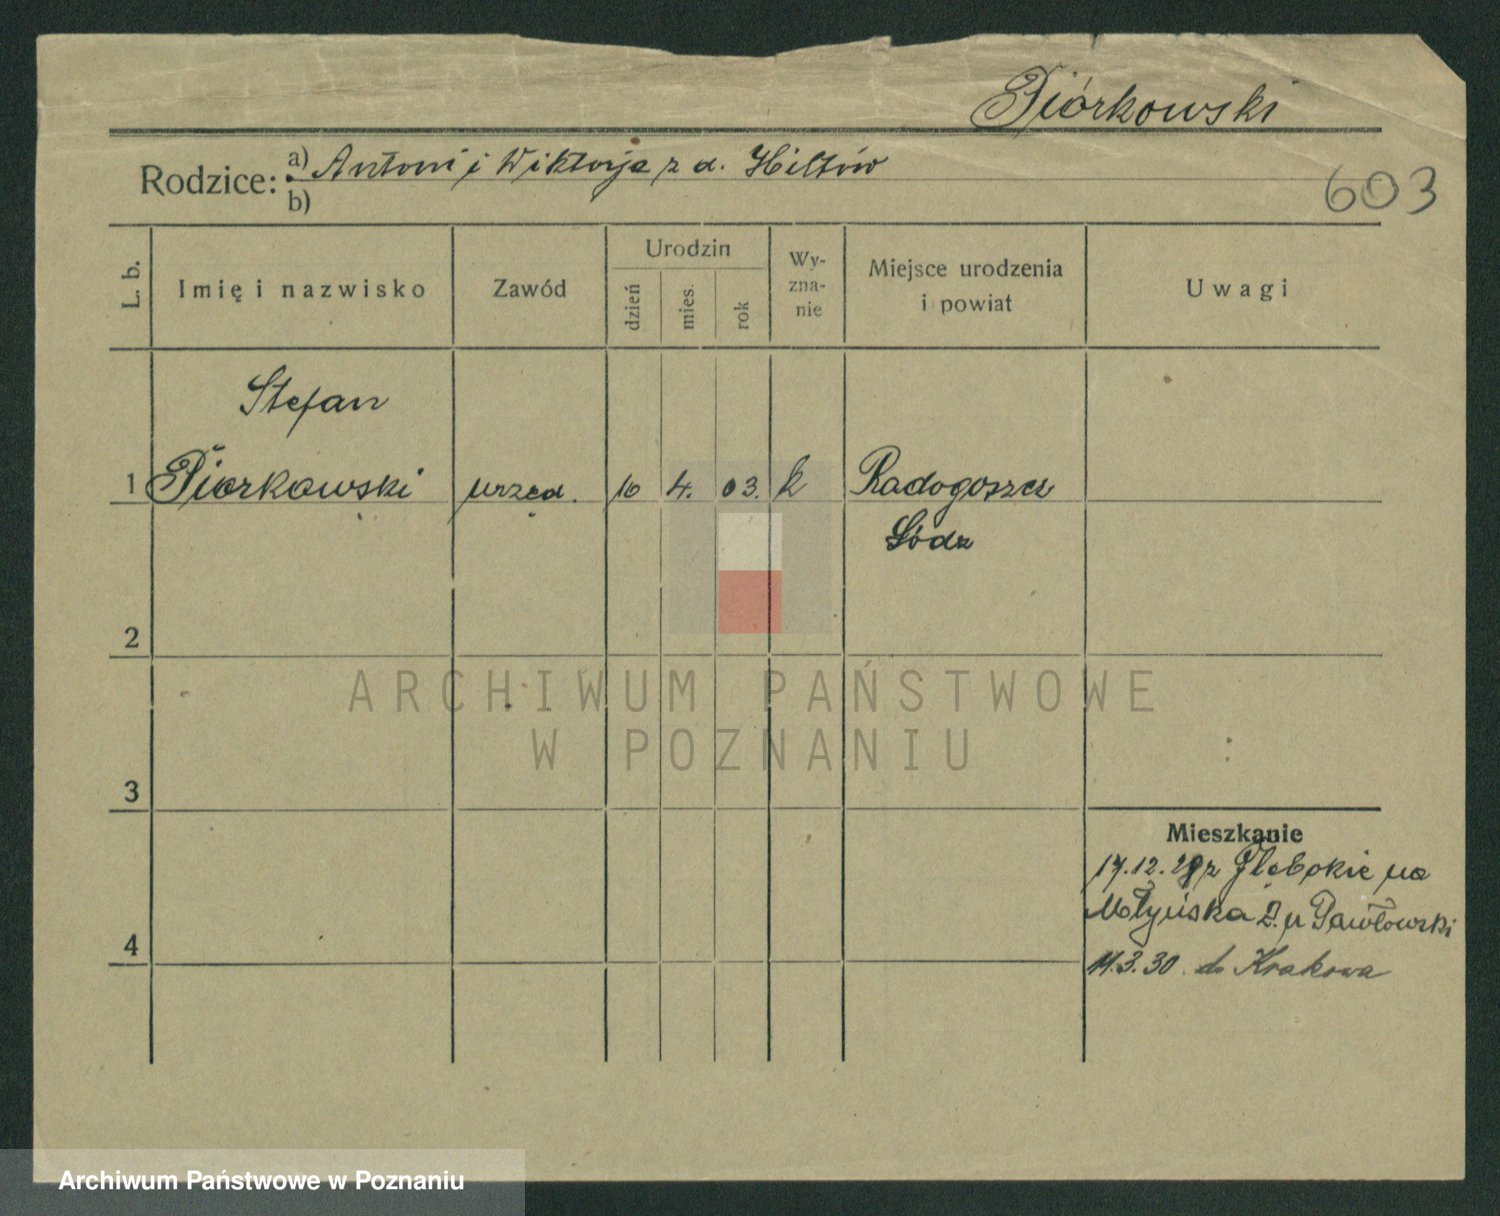 Piórkowski
Rodzice: a) Antoni i Wiktorja z d. Hiltów
b)
603
L. b.
Imię i nazwisko
Zawód
Urodzin
dzień
mies.
rok
Wy-
zna-
nie
Miejsce urodzenia
i powiat
Uwagi
Stefan
1 Piorkowski urzęd. 10 4. 03. k Radogoszcz
Łódz
2
ARCHIWUM PAŃSTWOWE
W POZNANIU
3
Mieszkanie
17.12.29 z Głębokie na
Młyńska 2. u Pawłowski
4
11.3.30. do Krakowa
Archiwum Państwowe w Poznaniu